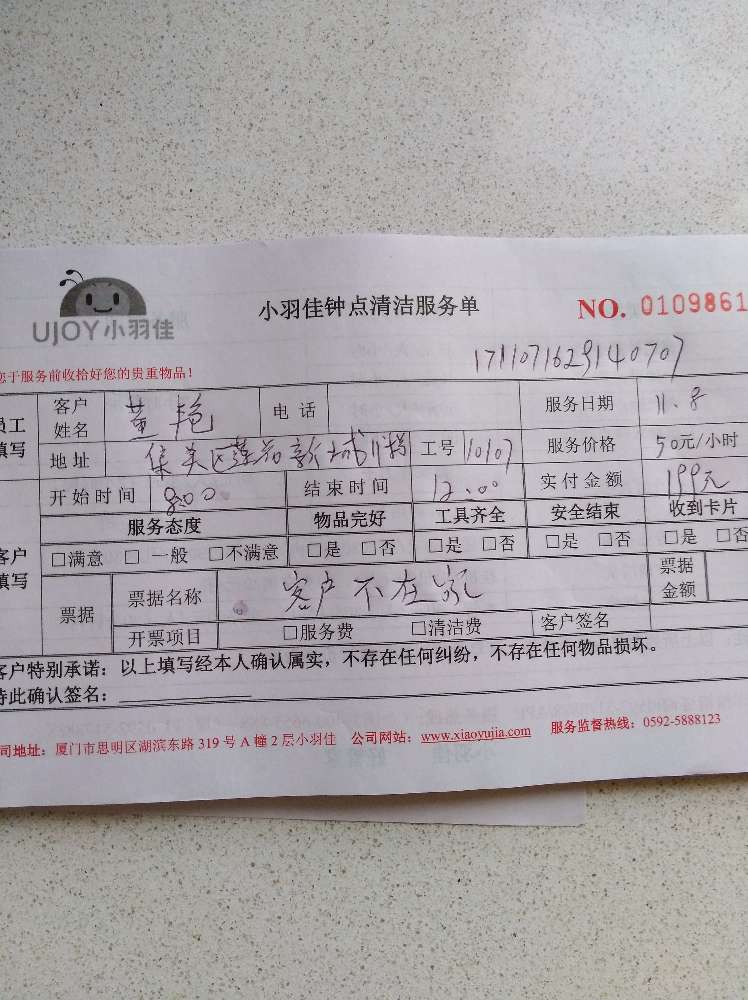 UJOY小羽佳
小羽佳钟点清洁服务单
NO. 0109861
您于服务前收拾好您的贵重物品!
1711071629140707
员工填写 客户姓名 董艳 电话 服务日期 11.8
地址 集美区莲花新城 工号 10107 服务价格 50元/小时
客户填写 开始时间 8:00 结束时间 12:00 实付金额 199元
服务态度 物品完好 工具齐全 安全结束 收到卡片
□满意 □一般 □不满意 □是 □否 □是 □否 □是 □否 □是 □否
票据 票据名称 客户不在家 票据金额
开票项目 □服务费 □清洁费 客户签名
客户特别承诺:以上填写经本人确认属实,不存在任何纠纷,不存在任何物品损坏。
特此确认签名:
公司地址:厦门市思明区湖滨东路 319 号 A 幢 2 层小羽佳 公司网站:www.xiaoyujia.com 服务监督热线:0592-5888123